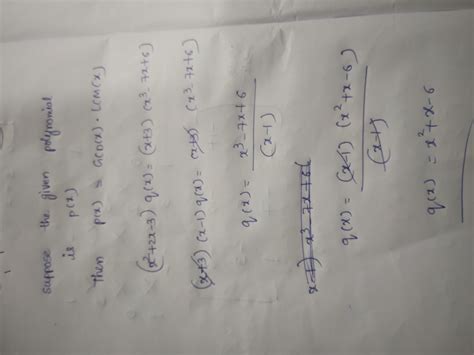 suppose the given polynomial
is p(x)
Then p(x) = GCD(x) · LCM(x)
(x²+2x-3) q(x) = (x+3) (x³-7x+6)
(x+3) (x-1) q(x) = (x+3) (x³-7x+6)
q(x) = x³-7x+6
(x-1)
x-1) x³-7x+6(
q(x) = (x-1) (x²+x-6)
(x-1)
q(x) = x²+x-6